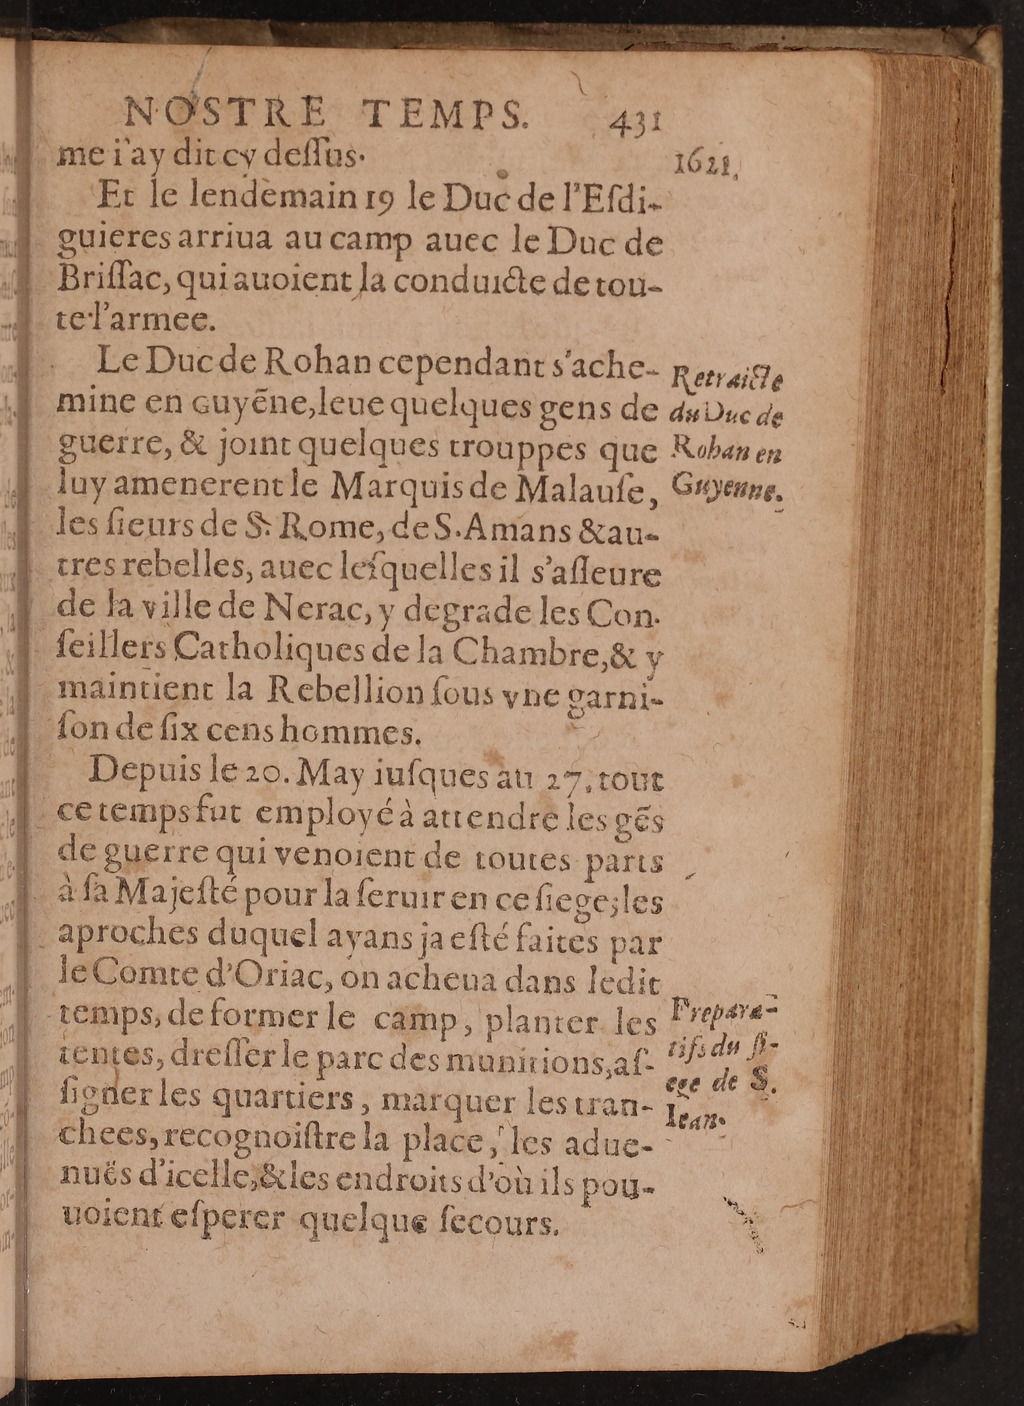 NOSTRE TEMPS. 431
1621,
me i'ay dit cy dessus.
Et le lendemain 19 le Duc de l'Esdi-
guieres arriua au camp auec le Duc de
Brissac, qui auoient la conduicte de tou-
te l'armee.
Le Duc de Rohan cependant s'ache-
mine en Guyēne, leue quelques gens de
guerre, & joint quelques trouppes que
luy amenerent le Marquis de Malause,
les sieurs de S. Rome, de S. Amans & au-
tres rebelles, auec lesquelles il s'asseure
de la ville de Nerac, y degrade les Con-
seillers Catholiques de la Chambre, & y
maintient la Rebellion sous vne garni-
son de six cens hommes.
Retraicte
du Duc de
Rohan en
Guyenne.
Depuis le 20. May iusques au 27, tout
ce temps fut employé à attendre les gēs
de guerre qui venoient de toutes parts
à sa Majesté pour la seruir en ce siege; les
aproches duquel ayans ja esté faites par
le Comte d'Oriac, on acheua dans ledit
temps, de former le camp, planter les
tentes, dresser le parc des munitions, as-
signer les quartiers, marquer les tran-
chees, recognoistre la place, les adue-
nuës d'icelle, & les endroits d'où ils pou-
uoient esperer quelque secours.
Prepara-
tifs du si-
ege de S.
Iean.